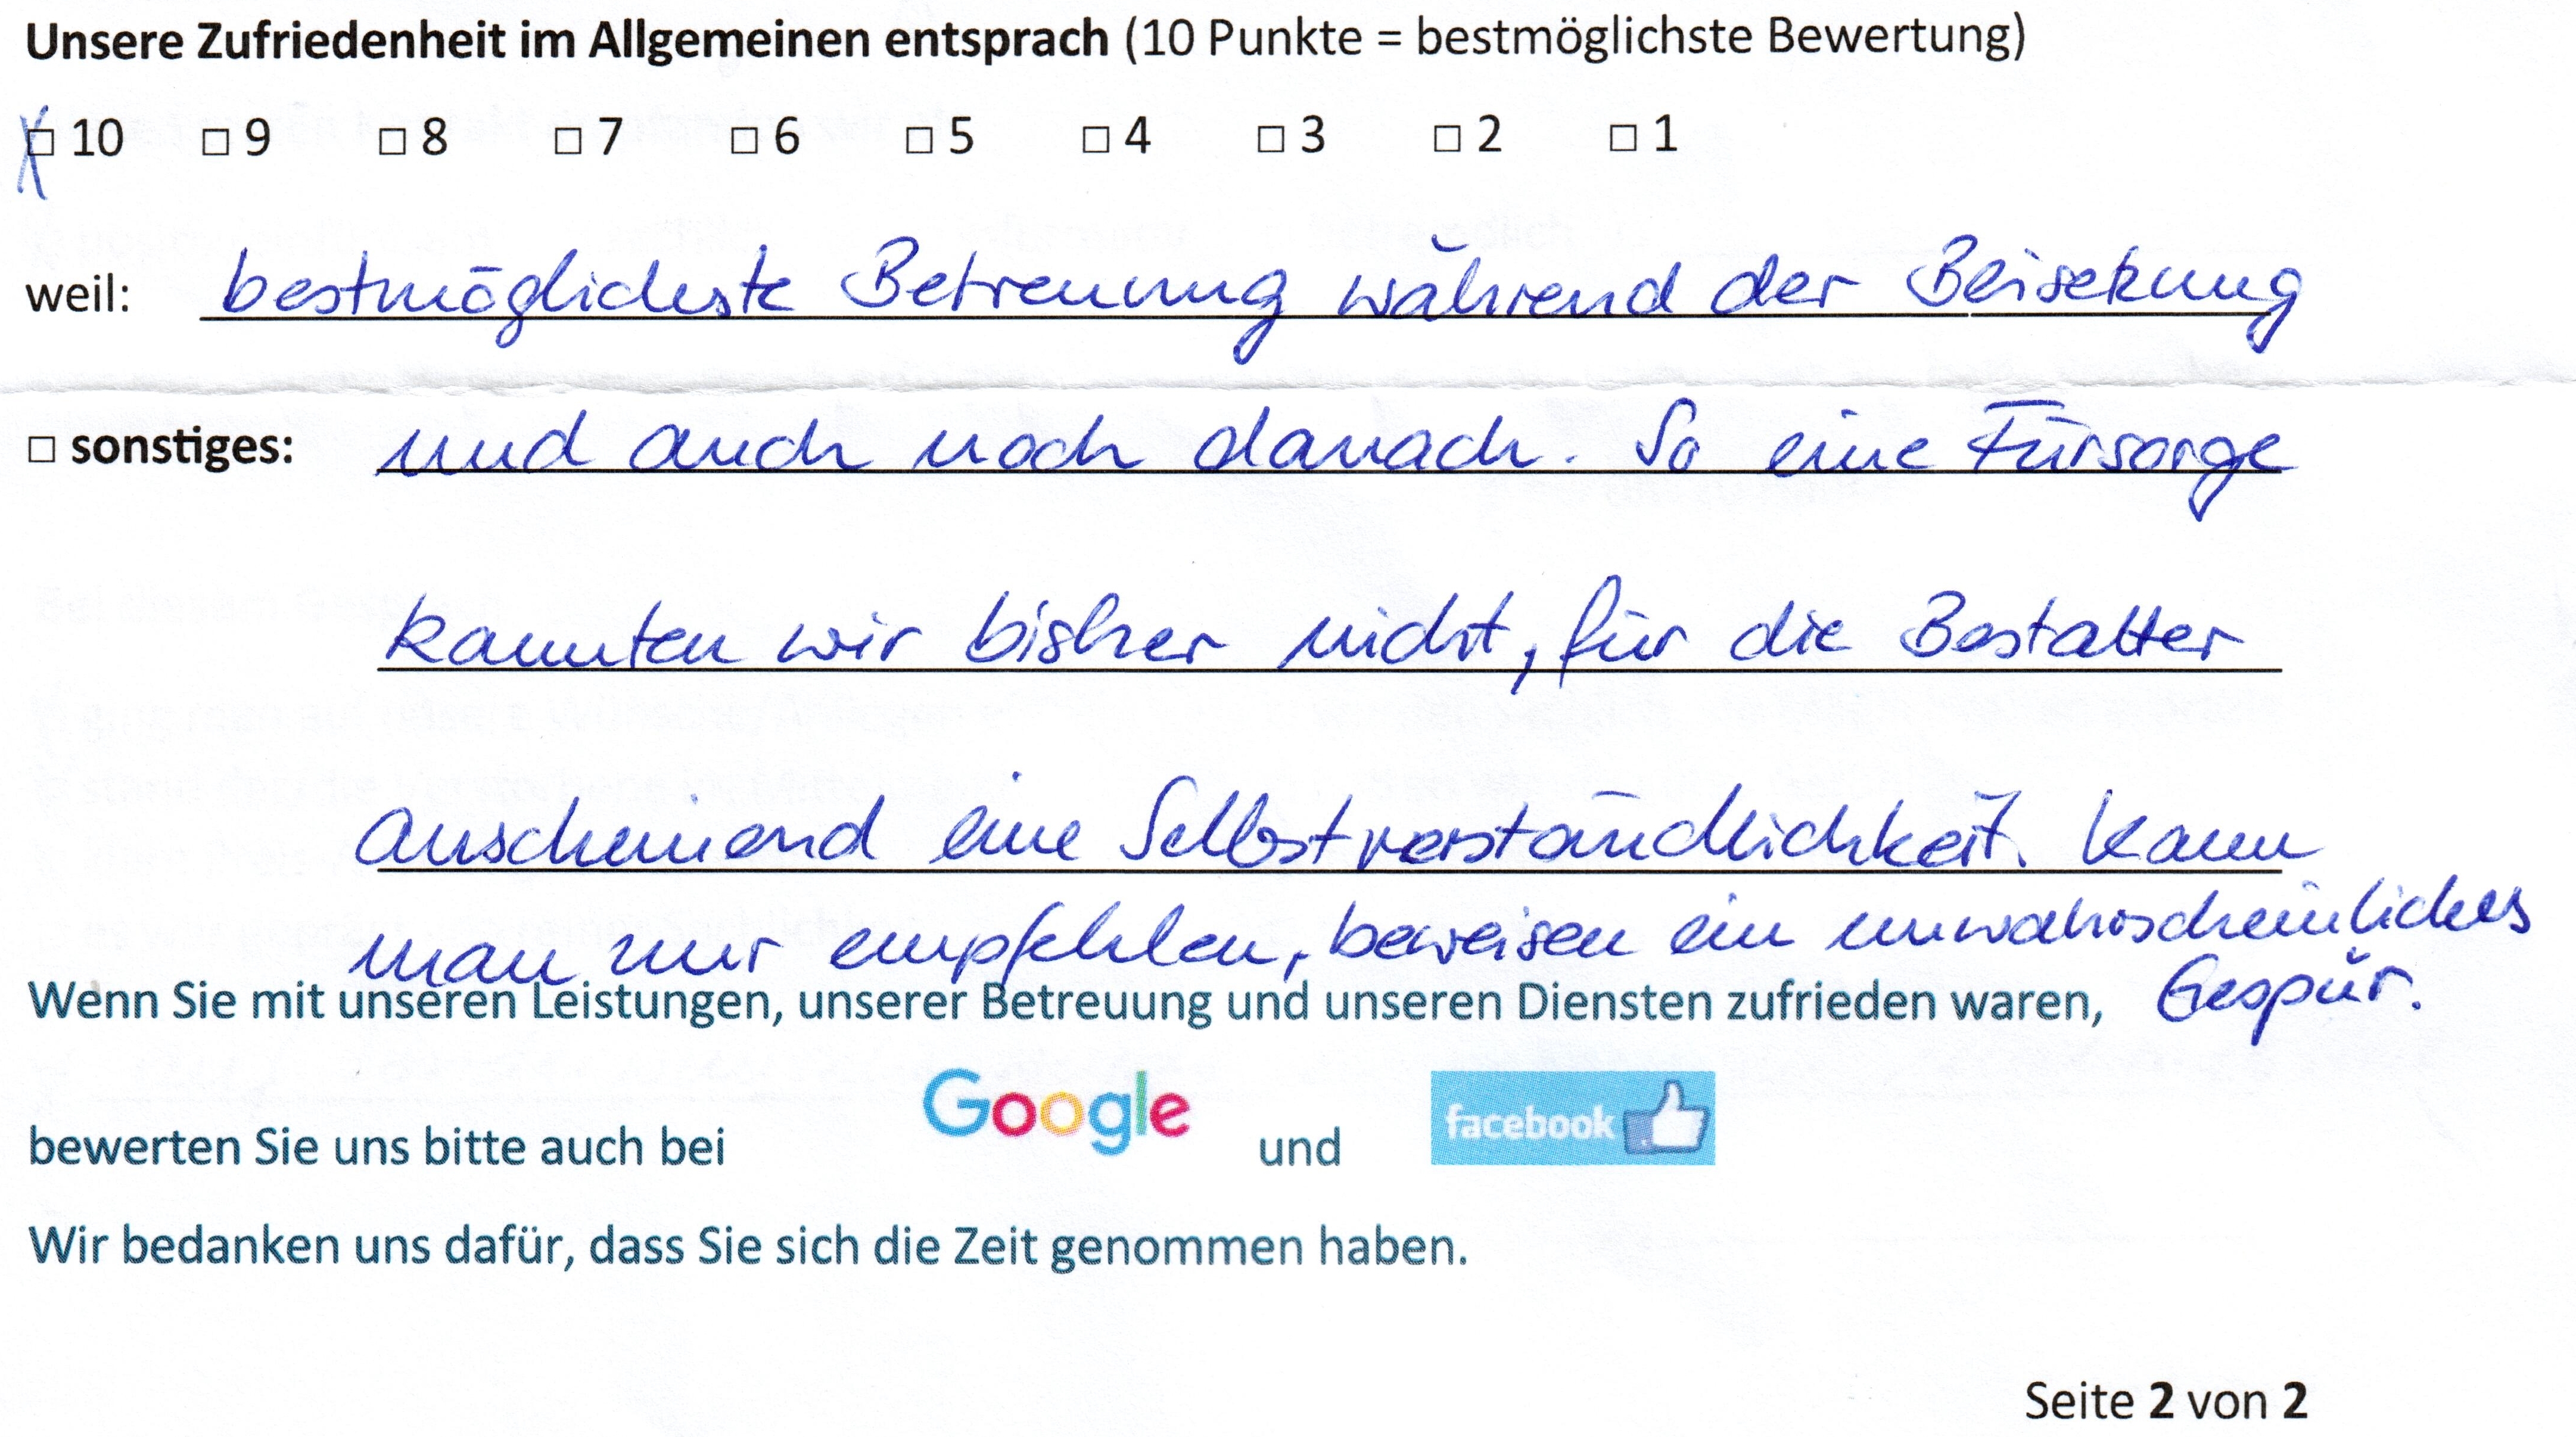 Unsere Zufriedenheit im Allgemeinen entsprach (10 Punkte = bestmöglichste Bewertung)
☒ 10 ☐ 9 ☐ 8 ☐ 7 ☐ 6 ☐ 5 ☐ 4 ☐ 3 ☐ 2 ☐ 1
weil: bestmöglichste Betreuung während der Beisetzung
☐ sonstiges: und auch noch danach. So eine Fürsorge
kannten wir bisher nicht, für die Bestatter
anscheinend eine Selbstverständlichkeit. Kann
man nur empfehlen, beweisen ein unwahrscheinliches
Gespür.
Wenn Sie mit unseren Leistungen, unserer Betreuung und unseren Diensten zufrieden waren,
bewerten Sie uns bitte auch bei Google und facebook
Wir bedanken uns dafür, dass Sie sich die Zeit genommen haben.
Seite 2 von 2